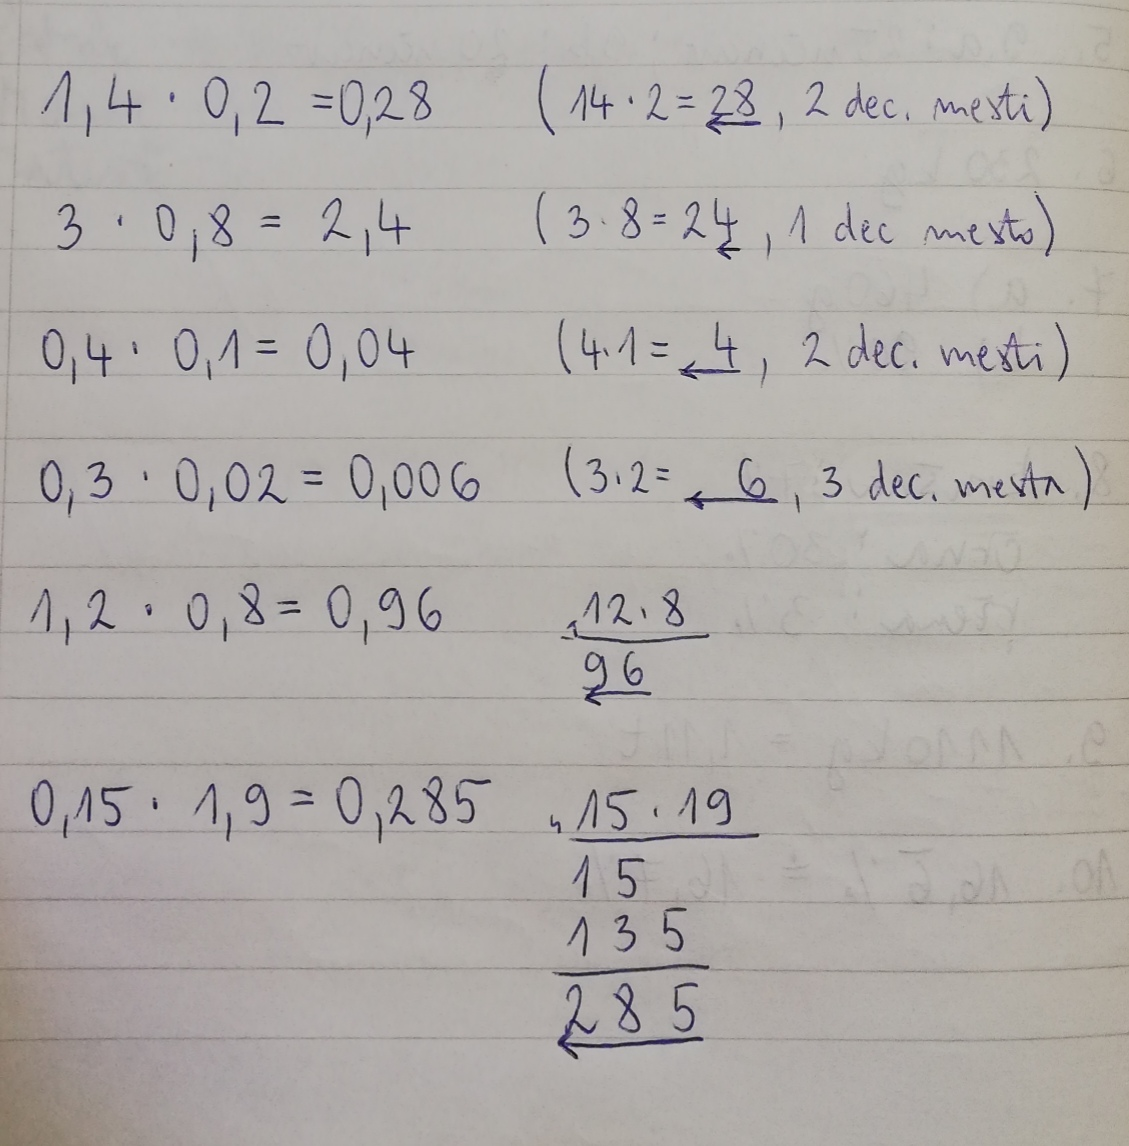 1,4 · 0,2 = 0,28 (14 · 2 = 28, 2 dec. mesti)
3 · 0,8 = 2,4 (3 · 8 = 24, 1 dec mesto)
0,4 · 0,1 = 0,04 (4 · 1 = 4, 2 dec. mesti)
0,3 · 0,02 = 0,006 (3 · 2 = 6, 3 dec. mesta)
1,2 · 0,8 = 0,96 12 · 8
96
0,15 · 1,9 = 0,285 15 · 19
15
135
285